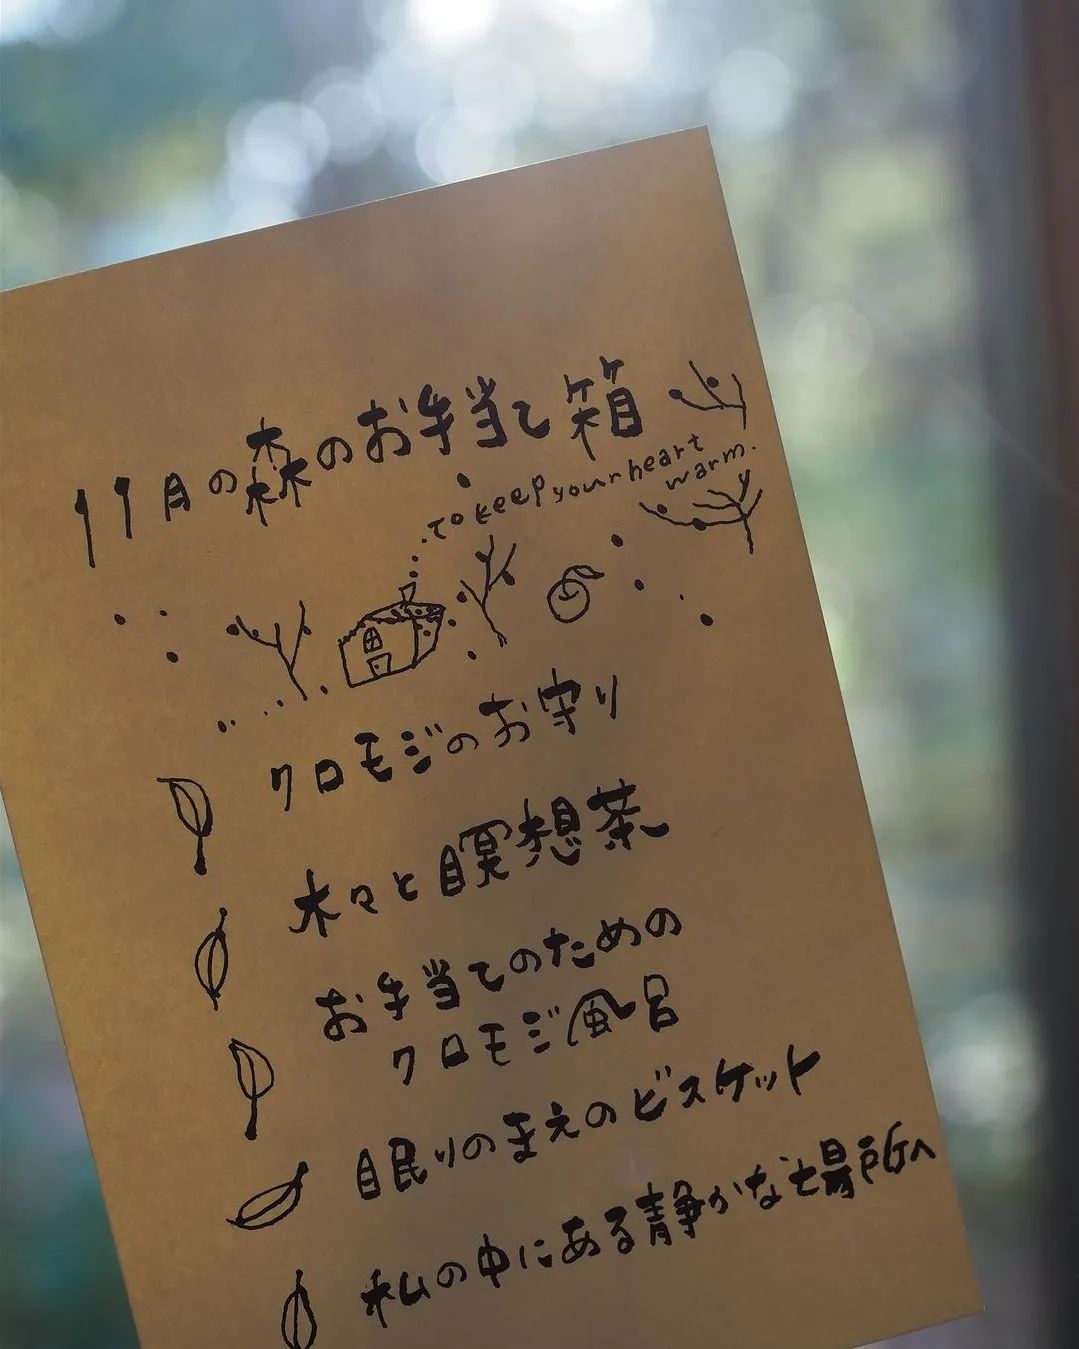 11月の森のお手当て箱
To keep your heart
warm.
クロモジのお守り
木々と瞑想茶
お手当てのための
クロモジ風呂
眠りのまえのビスケット
私の中にある静かな場所へ